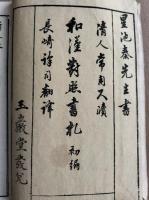 星池秦先生書
清人常用文牘
和漢對照書札 初編
長崎詳司翻譯
玉巖堂發兌